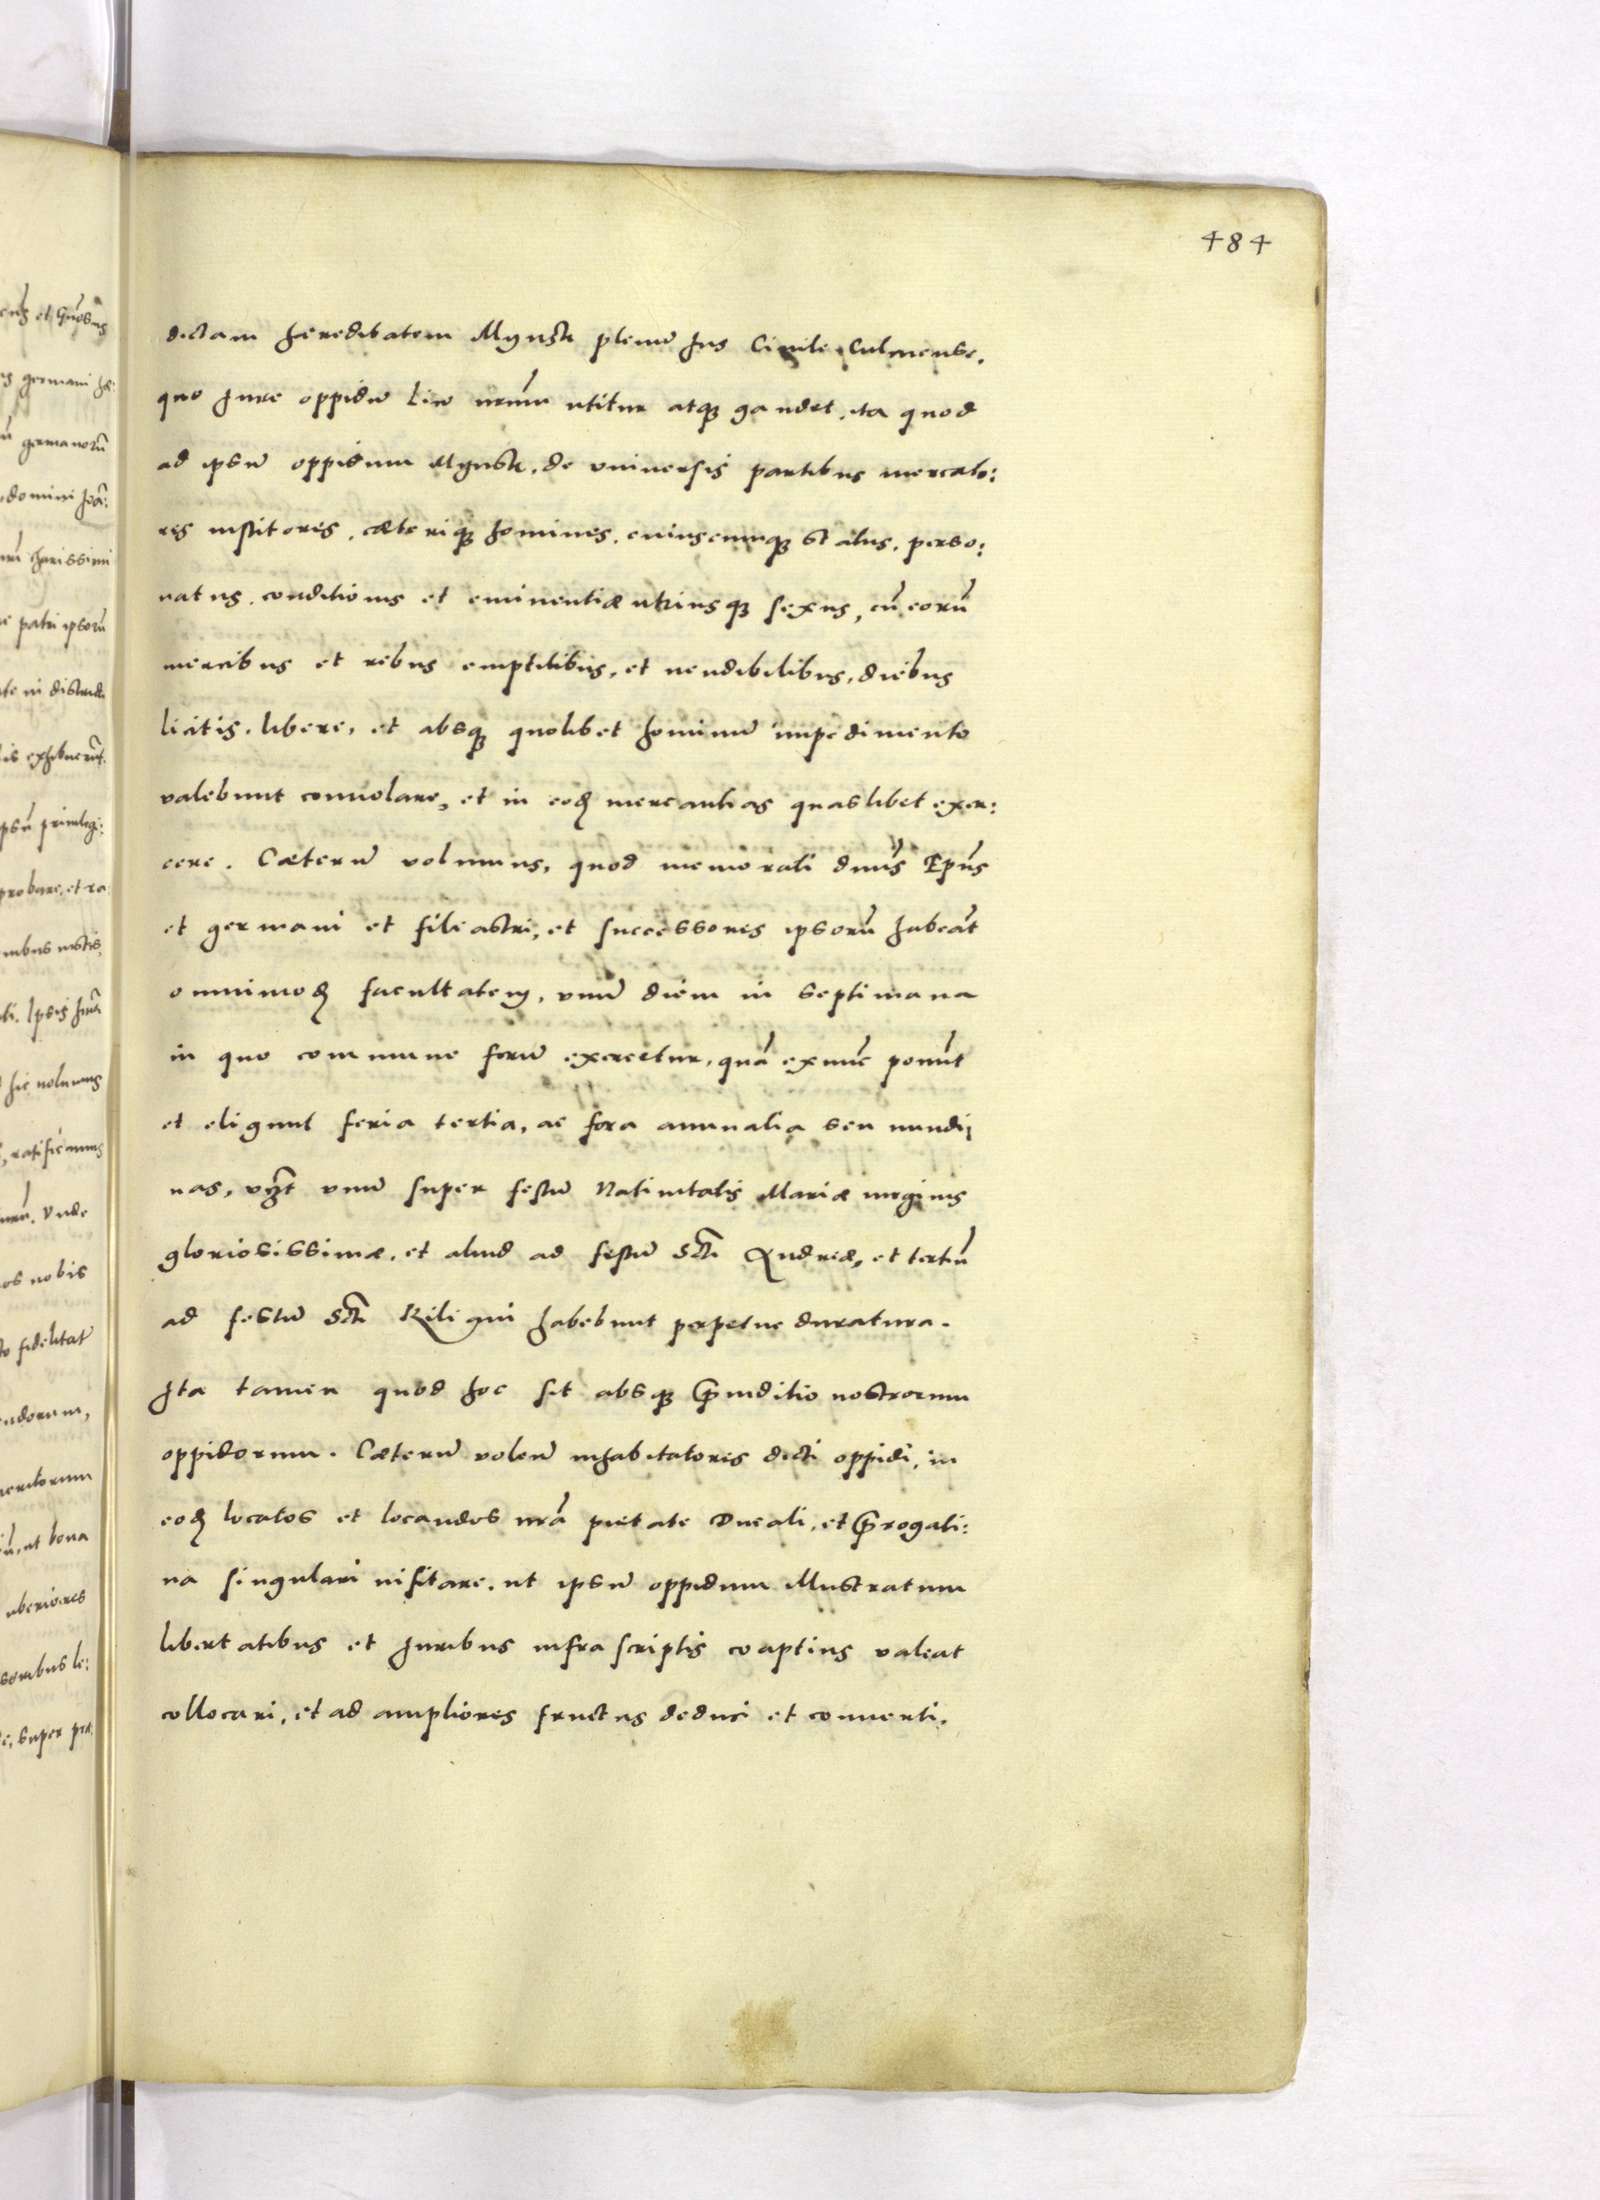 484
dictam hereditatem Mgnsti plenũ Jus Ciuile Culmense,
quo Jure oppidũ Liw nr̃um utitur atq; gaudet, ita quod
ad ipsũ oppidum Mgnsti, de vniuersis partibus mercato:
res institores, cæteriq; homines, cuiuscunq; status, perso:
natus, conditionis et eminentiæ utriusq; sexus, cũ eorũ
mercibus et rebus emptilibus, et uendibilibus, diebus
licitis, libere, et absq; quolibet hominũ impedimento
valebunt conuolare, et in eod mercantias quaslibet exer:
cere. Cæterũ volumus, quod memorati dñus Ep̃us
et germani et filiastri, et successores ipsorũ habeãt
omnimod facultatem, vnũ diem in septimana
in quo commune forũ exercetur, quã exnũc ponũt
et eligunt feria tertia, ac fora annualia seu nundi
nas, vz̃t vnũ super festũ Natiuitatis Mariæ uirginis
gloriosissimæ, et aliud ad festũ Sc̃ti Andreæ, et tertiũ
ad festũ Sc̃ti Kiligiui habebunt perpetue duratura.
Ita tamen quod hoc sit absq; p̃iuditio nostrorum
oppidorum. Cæterũ volen̄ inhabitatores dicti oppidi, in
eod locatos et locandos nr̃a pietate Ducali, et p̃rogati:
ua singulari uisitare, ut ipsũ oppidum illustratum
libertatibus et Juribus infrascriptis coaptius valeat
collocari, et ad ampliores fructus deduci et conuerti,
germani hæ:
germanorũ
domini Joã:
charissimi
patri ipsorũ
in districtu
exhibuerũt
ipsũ priuilegi:
probare, et ra
Ipsis
hic uolumus
ratificamus
Vnde
nobis
fidelitat
ut bona
uberiores
super præ: